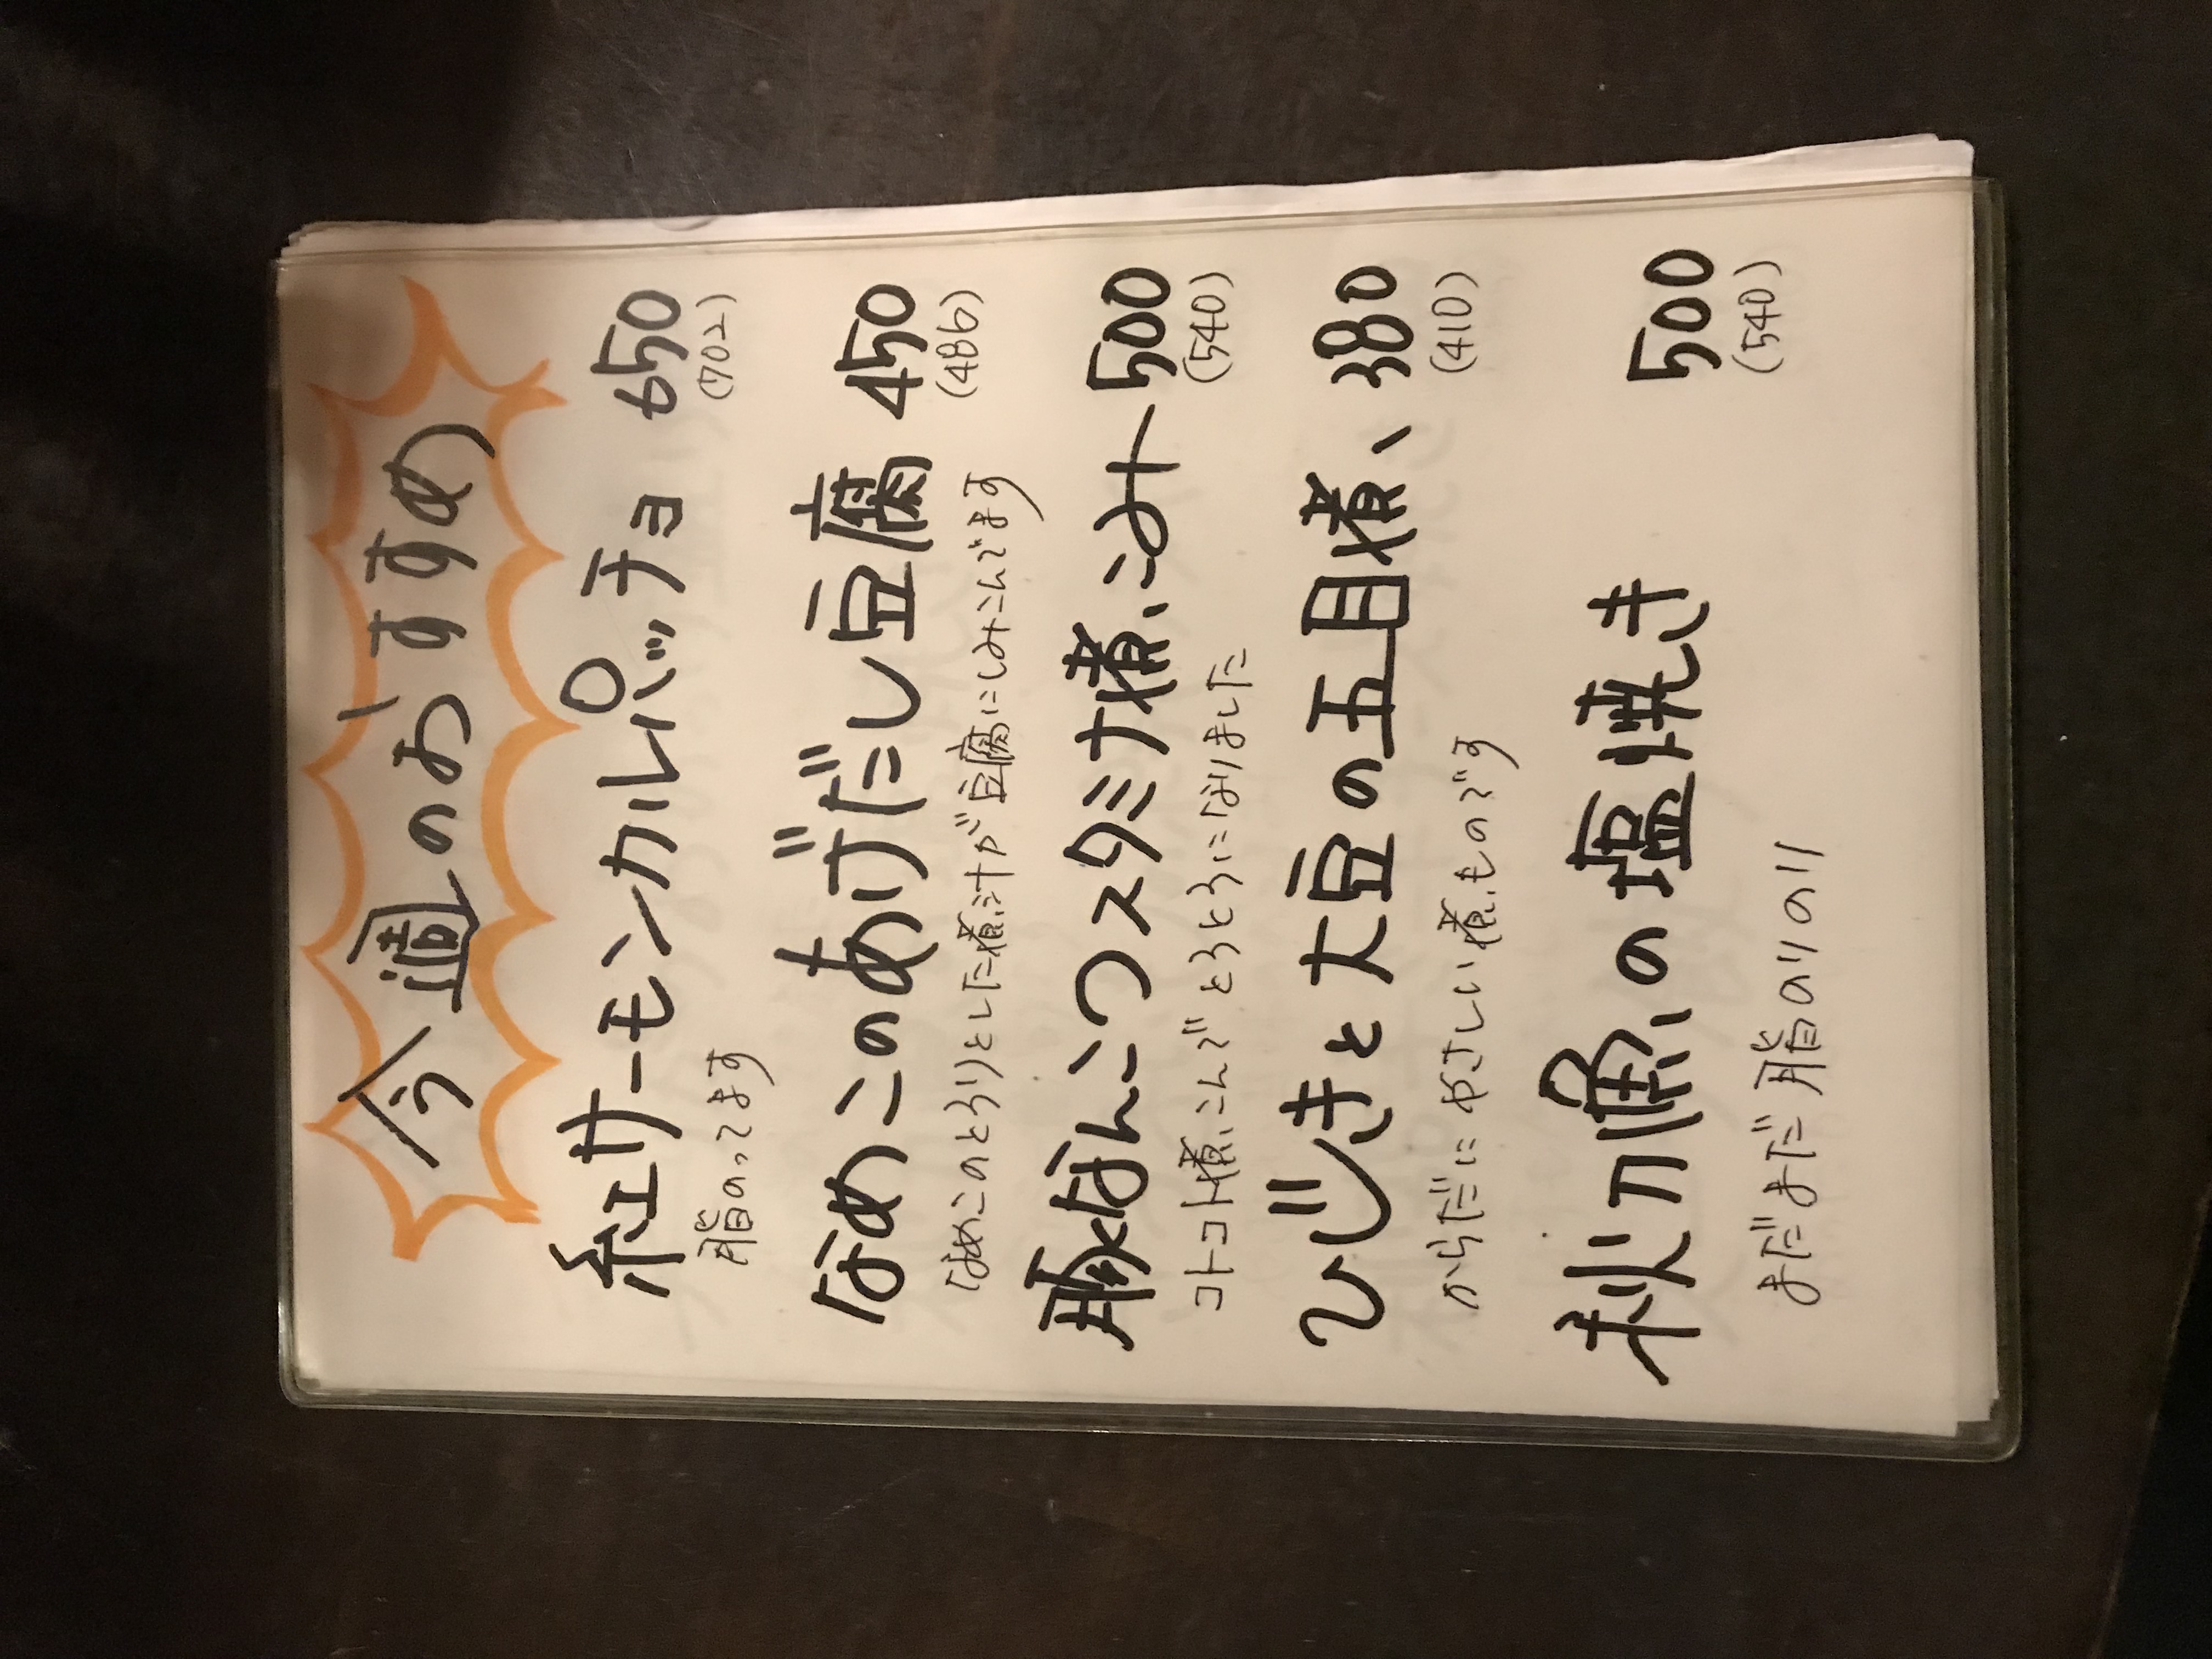 今週のおすすめ
紅サーモンカルパッチョ 650
(702)
脂のってます
なめこのあげだし豆腐 450
(486)
なめこのとろりとした煮汁が豆腐にしみこんでます
豚なんこつスタミナ煮こみ 500
(540)
コトコト煮こんでとろとろになりました
ひじきと大豆の五目煮 380
(410)
からだにやさしい煮ものです
秋刀魚の塩焼き 500
(540)
まだまだ脂のりのり